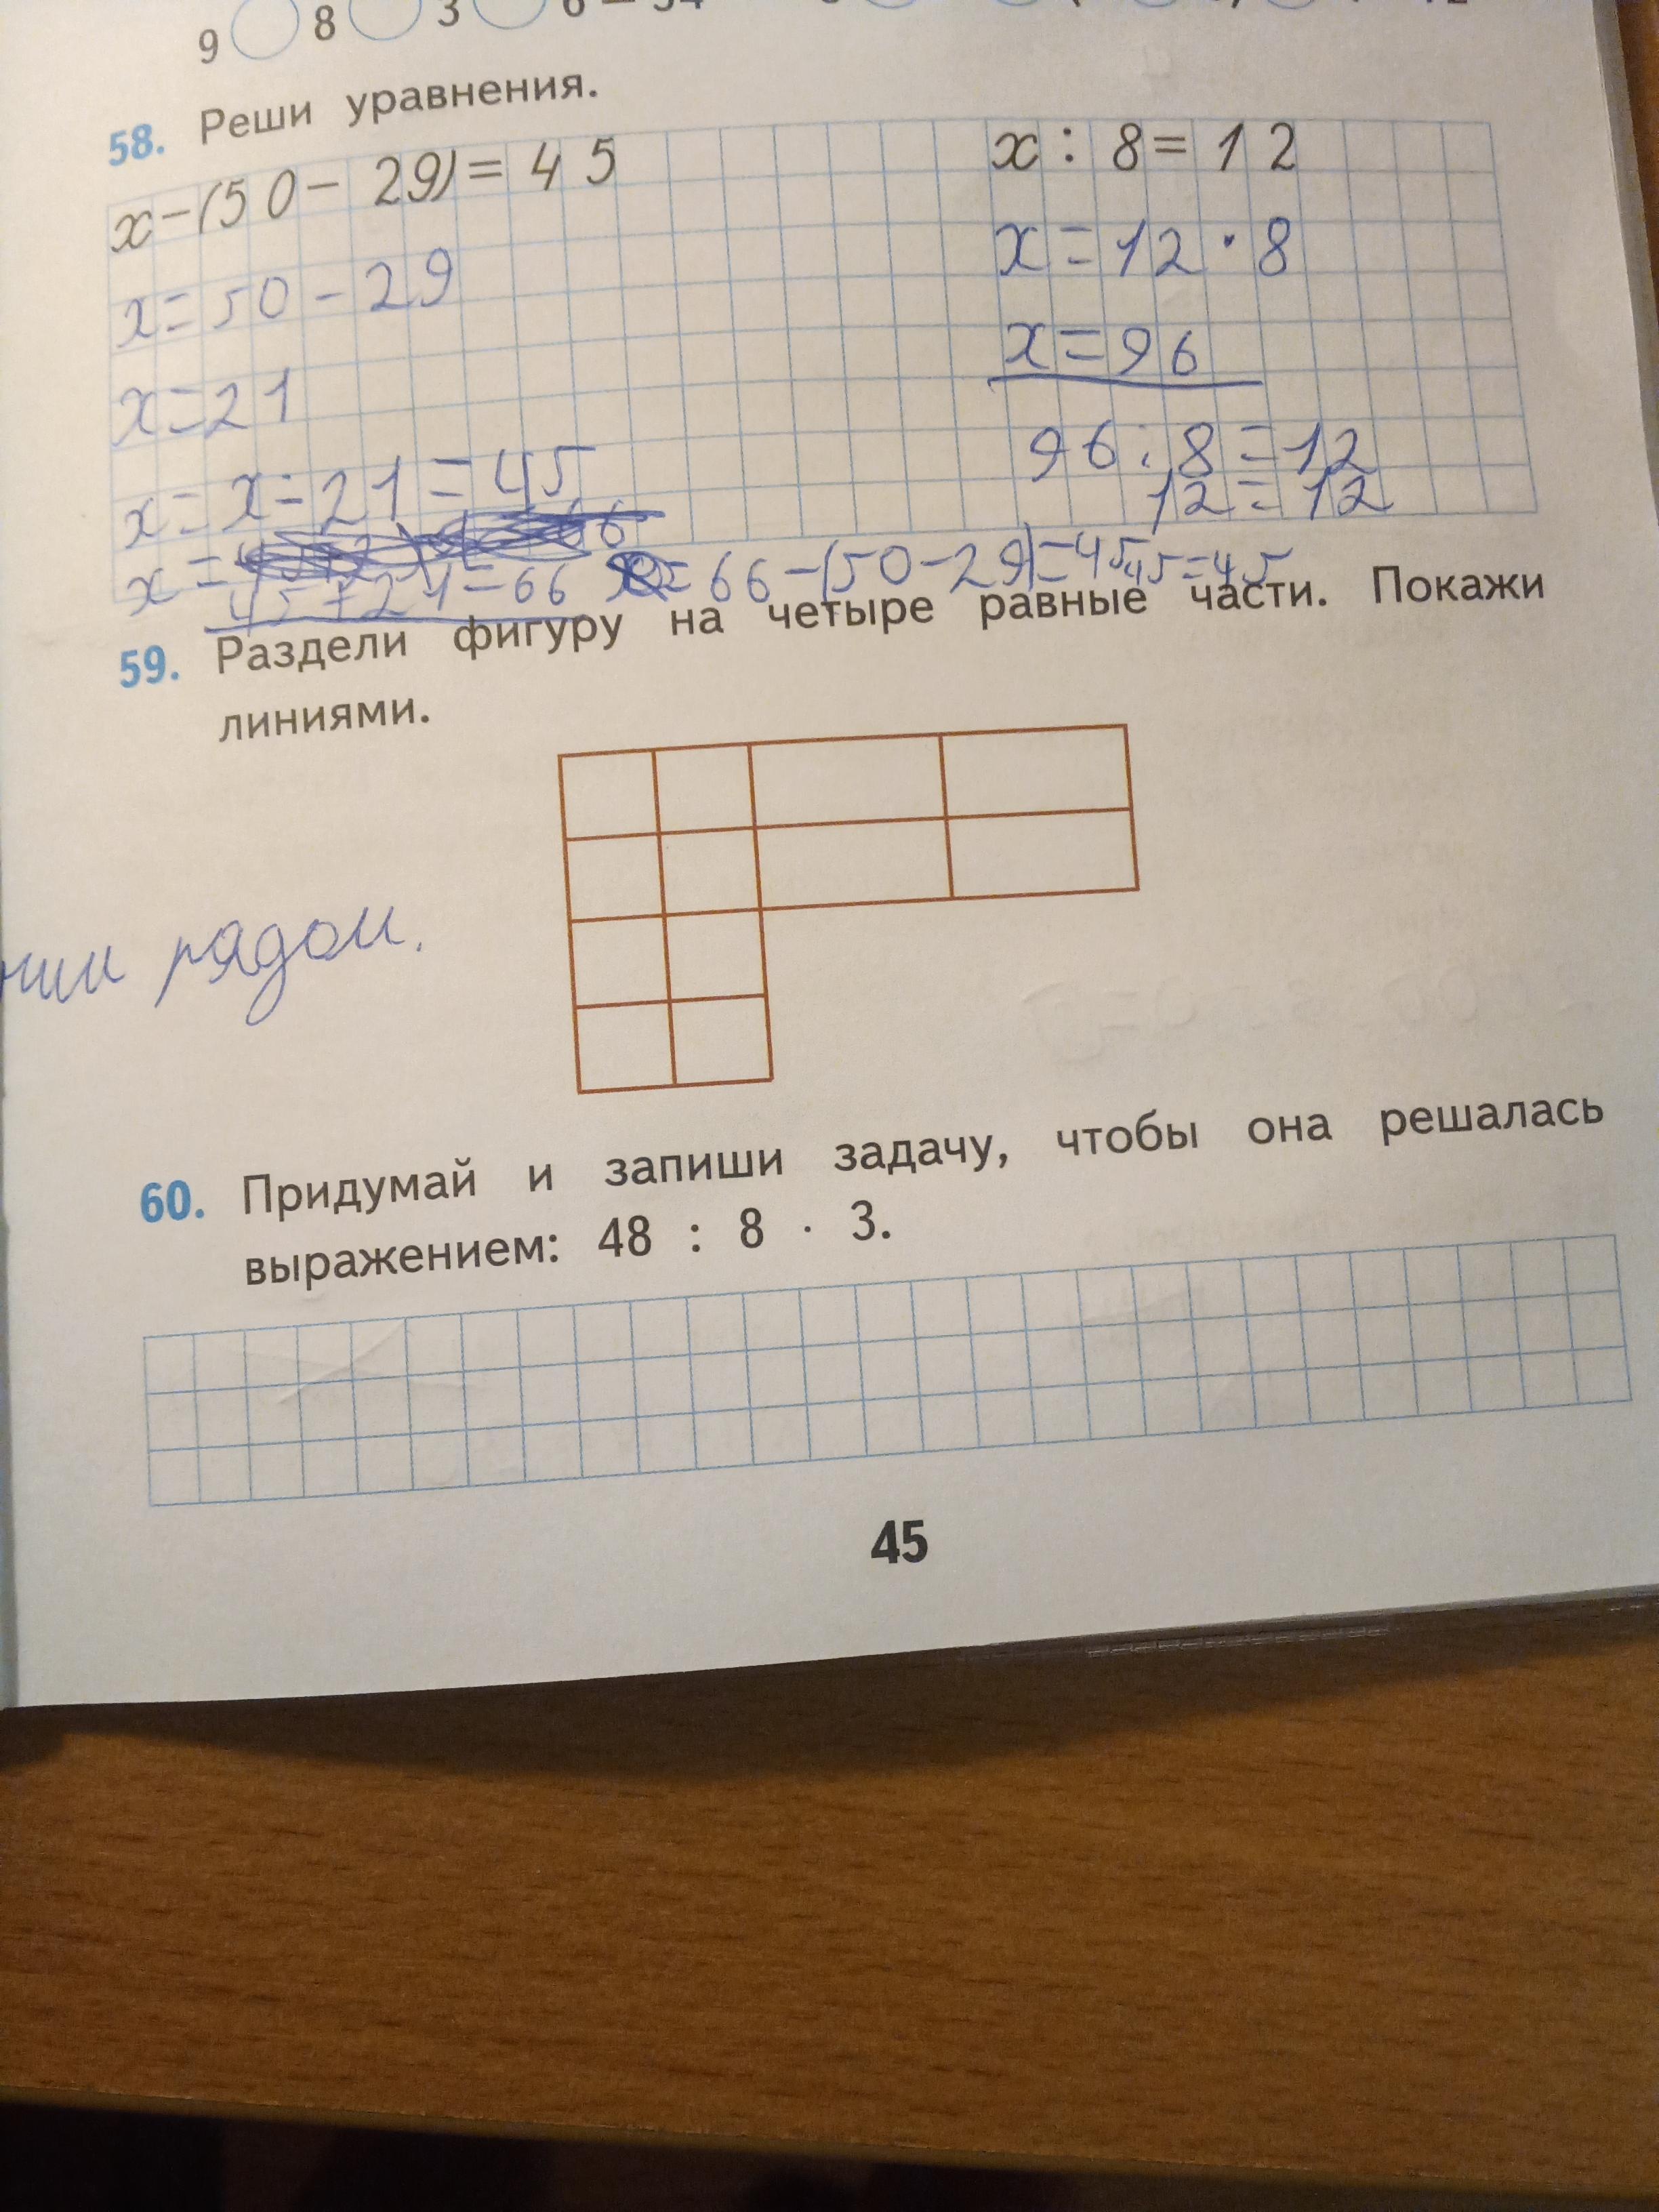 9 8 3 6 = 54
58. Реши уравнения.
x-(50-29)=45
x=50-29
x=21
x=x-21=45
x=45+21=66 66-(50-29)=45 45=45
x:8=12
x=12·8
x=96
96:8=12
12=12
59. Раздели фигуру на четыре равные части. Покажи
линиями.
рядом.
60. Придумай и запиши задачу, чтобы она решалась
выражением: 48 : 8 · 3.
45